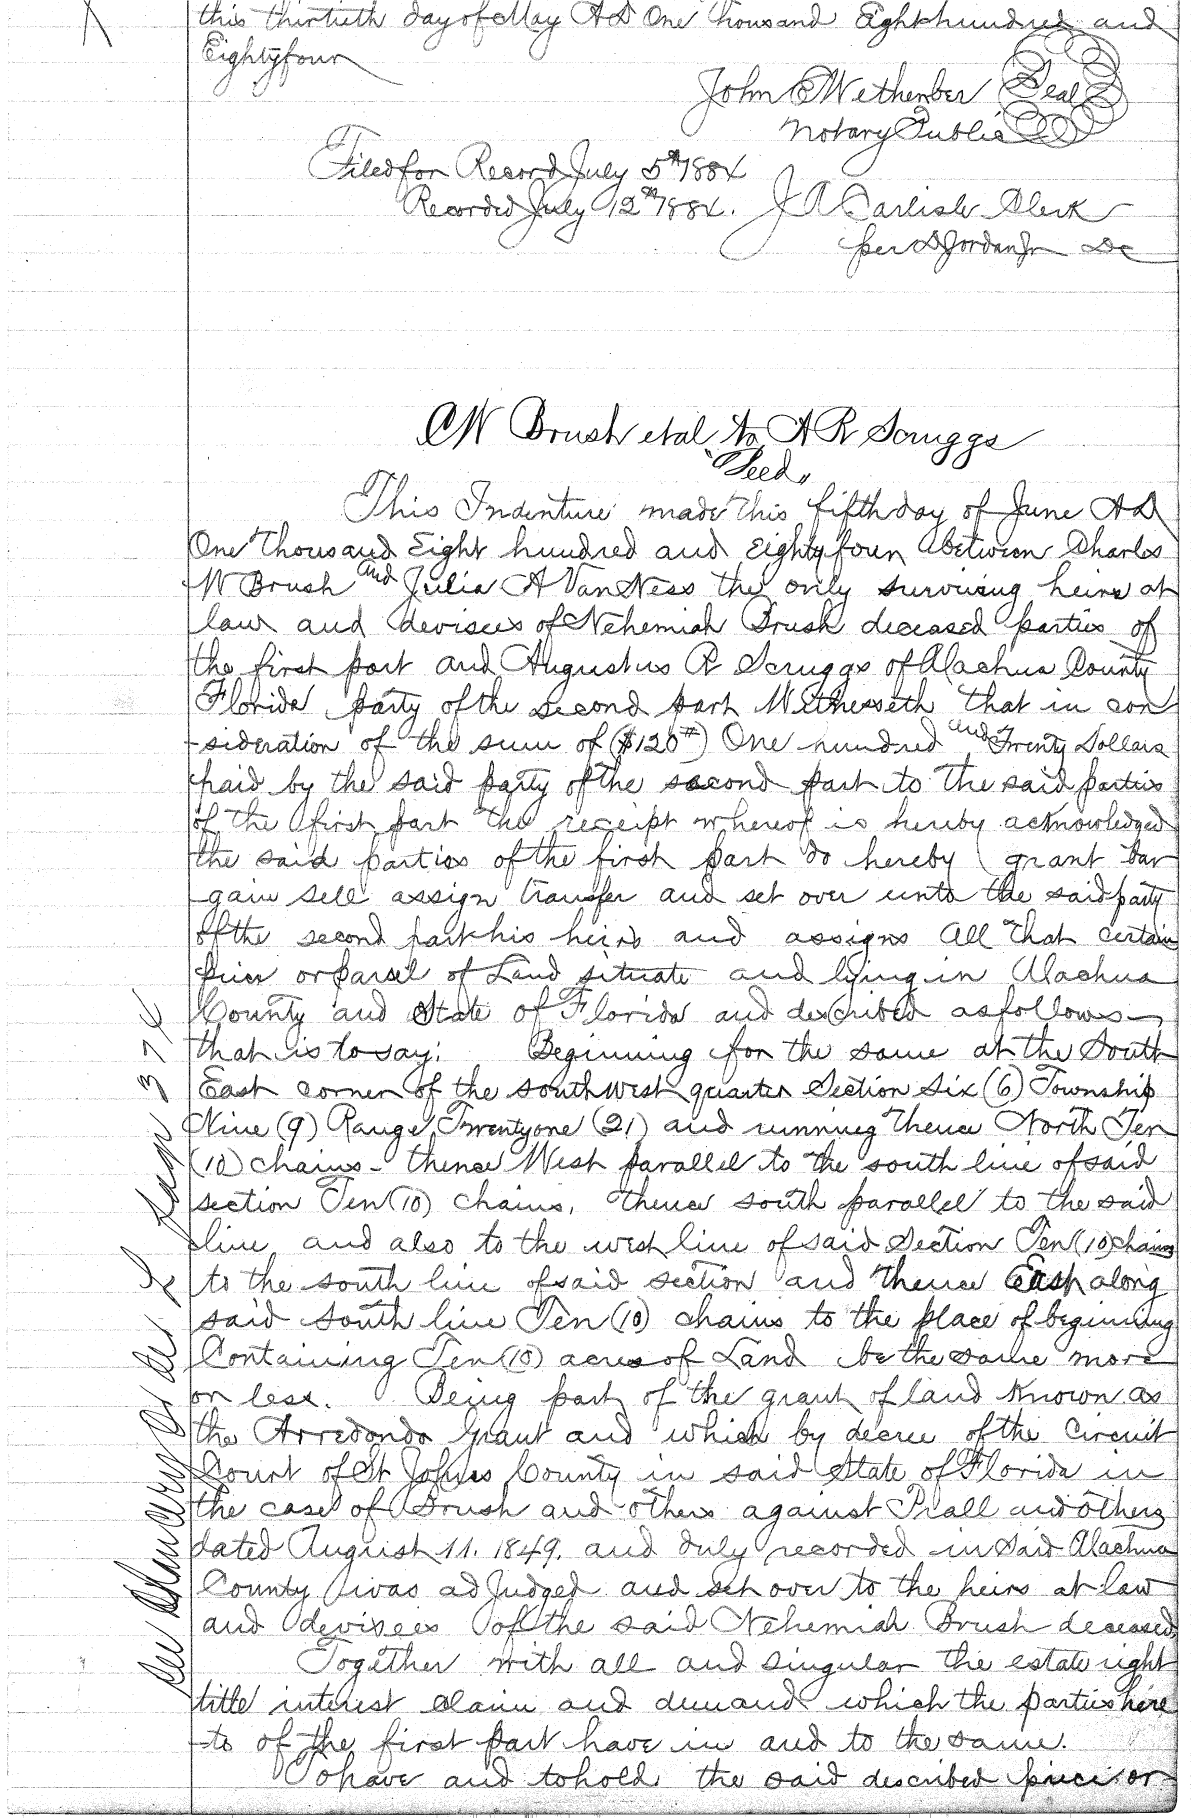 this thirtieth day of May A D One Thousand Eight hundred and
Eightyfour
John C Wethenber Seal
Notary Public
Filed for Record July 5th 1884
Recorded July 12th 1884. J A Carlisle Clerk
per D Jordan Jr DC
CW Brush et al to A R Scruggs
"Deed"
This Indenture made this fifth day of June A D
One Thousand Eight hundred and Eightyfour between Charles
W Brush and Julia A VanNess the only surviving heirs at
law and devisees of Nehemiah Brush deceased parties of
the first part and Augustus R Scruggs of Alachua County
Florida party of the second part Witnesseth that in con
-sideration of the sum of ($120 ) One hundred and Twenty Dollars
paid by the said party of the second part to the said parties
of the first part the receipt whereof is hereby acknowledged
the said parties of the first part do hereby grant bar
-gain sell assign transfer and set over unto the said party
of the second part his heirs and assigns All that certain
piece or parsel of Land situate and lying in Alachua
County and State of Florida and described as follows
that is to say: Beginning for the same at the South
East corner of the southwest quarter Section Six (6) Township
Nine (9) Range Twentyone (21) and running thence North Ten
(10) chains - thence West parallel to the south line of said
section Ten (10) chains, thence south parallel to the said
line and also to the west line of said Section Ten (10) chains
to the south line of said section and thence East along
said south line Ten (10) chains to the place of beginning
Containing Ten (10) acres of Land be the same more
or less. Being part of the grant of land known as
the Arredondo Grant and which by decree of the Circuit
Court of St Johns County in said State of Florida in
the case of Brush and others against Prall and others
dated August 11. 1849. and duly recorded in said Alachua
County was adjudged and set over to the heirs at law
and devisees of the said Nehemiah Brush deceased,
Together with all and singular the estate right
title interest claim and demand which the parties here
-to of the first part have in and to the same.
To have and to hold the said described piece or
See Chancery Or page 374